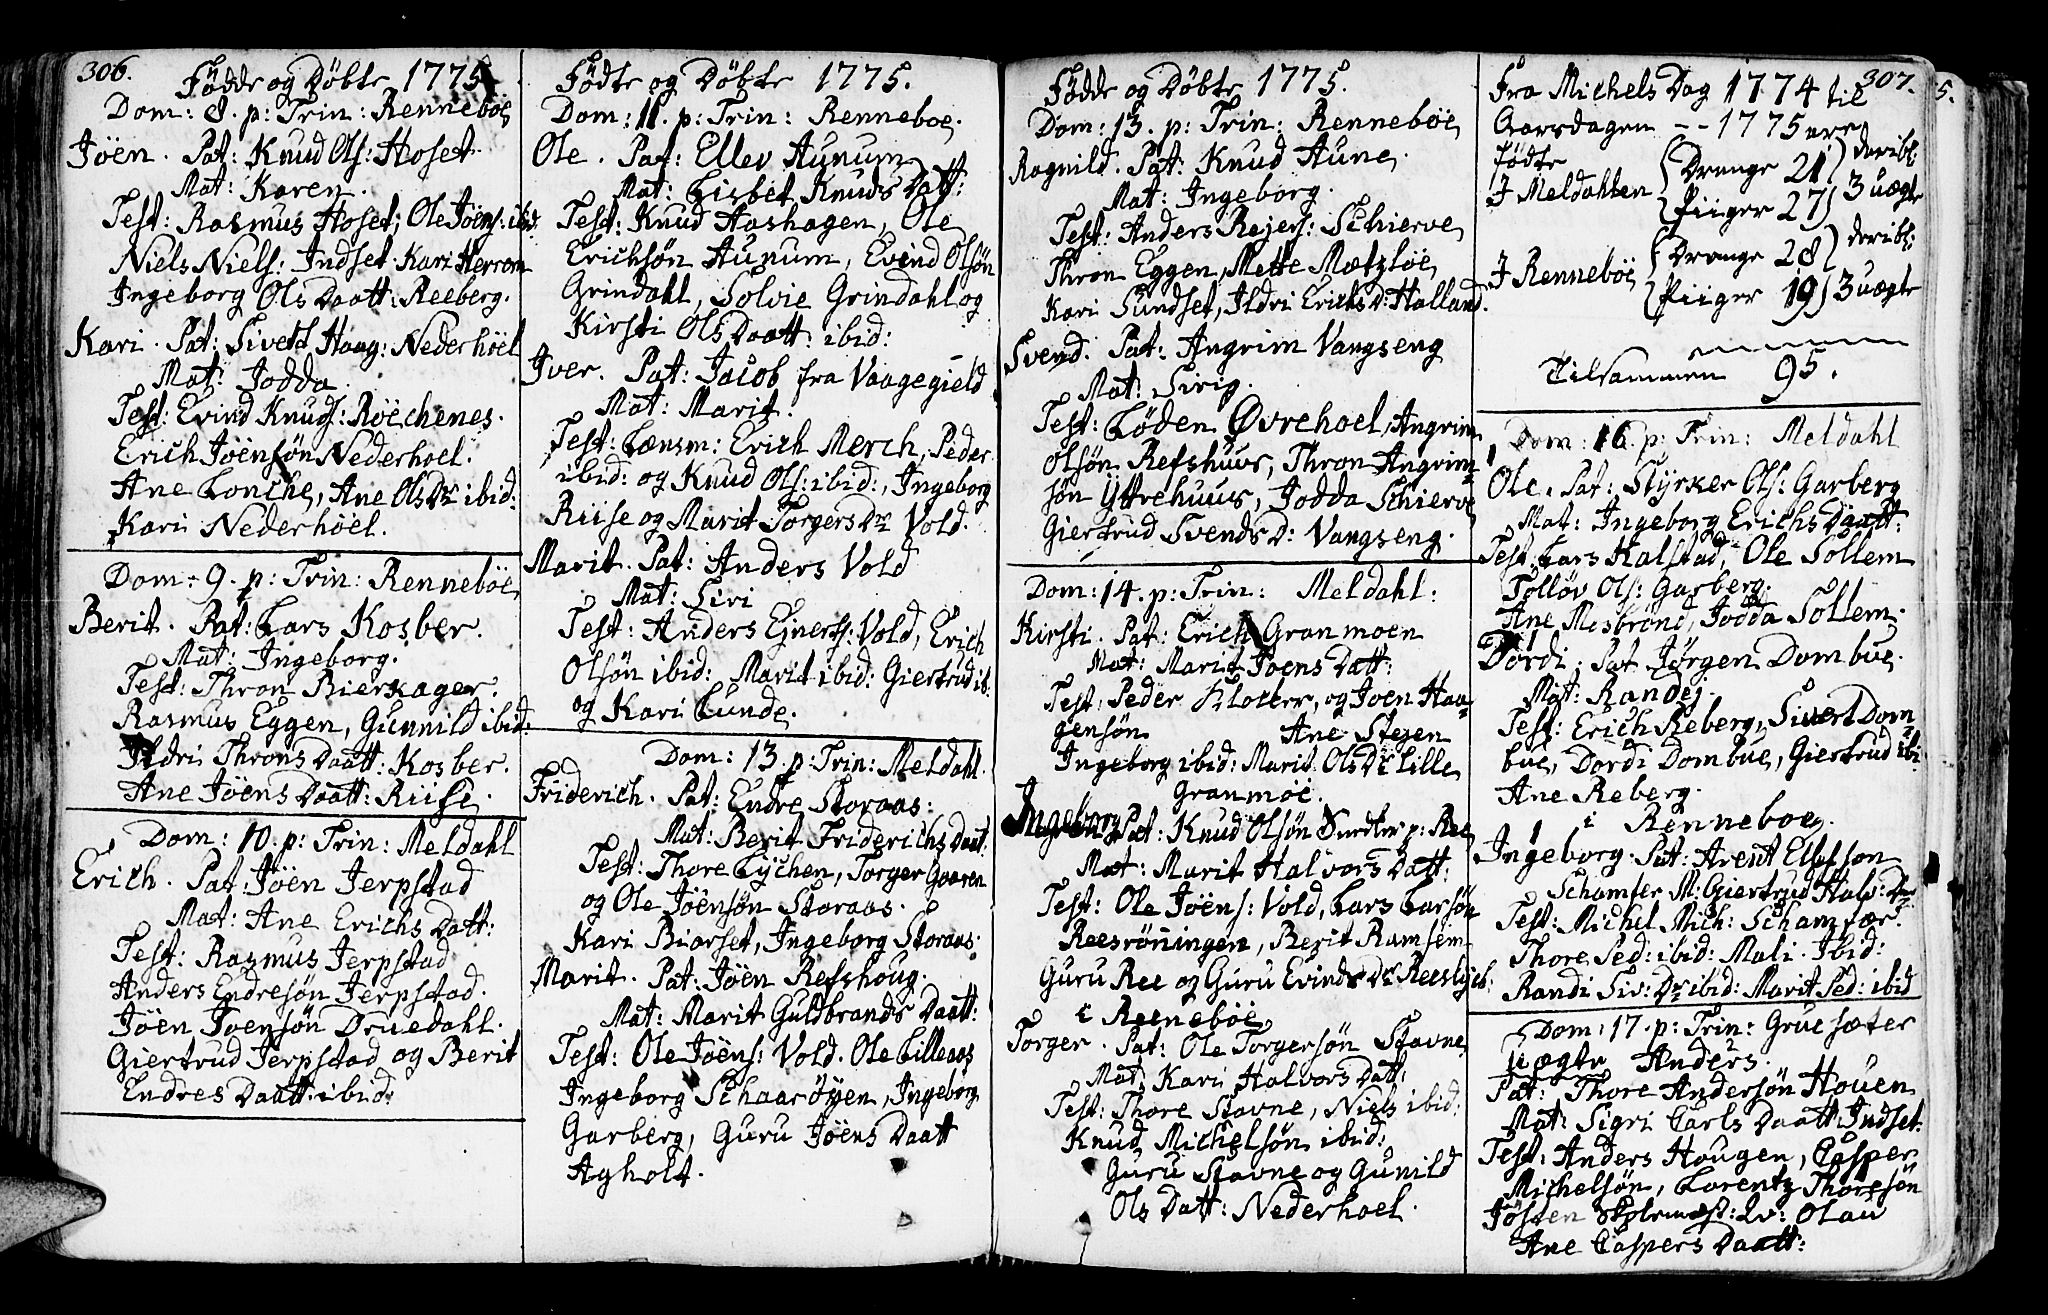 306.
Fødde og Døbte 1775
Dom: 8. p: Trin: Renneböe
Jöen. Pat: Knud Ols: Hoset
Mat: Karen.
Test: Rasmus Hoset, Ole Jöens: ibd
Niels Niels: Indset. Kari Herrem
Ingeborg Ols Daatt: Reeberg.
Kari. Pat: Sivert Haag: Nederhöel
Mat: Jodda
Test: Evind Knuds: Röechenes.
Erich Jöensön Nederhoel.
Ane Lonche, Ane Ols Dr ibid:
Kari Nederhöel.
Dom: 9. p: Trin: Renneböe
Berit. Pat: Lars Kosber.
Mat: Ingeborg.
Test: Thron Bierkager.
Rasmus Eggen, Gunnild ibid:
Ildri Throns Daatt: Kosber.
Ane Jöens Daatt: Riise.
Dom: 10. p: Trin: Meldahl
Erich. Pat: Jöen Jerpstad
Mat: Ane Erichs Datt:
Test: Rasmus Jerpstad
Anders Endresön Jerpstad.
Jöen Joensön Druedahl.
Giertrud Jerpstad og Berit
Endres Daatt: ibid:
Fødte og Døbte 1775.
Dom: 11. p: Trin: Renneboe.
Ole. Pat: Ellev Aunum
Mat: Lisbet Knuds Datt:
Test: Knud Hoshagen, Ole
Erichsön Aunum, Evind Olsön
Grindahl, Solvie Grindahl og
Kirsti Ols Daatt: ibid:
Iver. Pat: Jacob fra Vaagegield
Mat: Marit.
Test: Lænsm: Erich Merch, Peder
ibid: og Knud Ols: ibid:, Ingeborg
Riise og Marit Torgers Dr Vold.
Marit. Pat: Anders Vold
Mat: Siri
Test: Anders Ejnerts: Vold, Erich
Olsön ibid: Marit ibid: Giertrud ib:
og Kari Lunde.
Dom: 13. p: Trin: Meldahl.
Friderich. Pat: Endre Storaas:
Mat: Berit Friderichs Daat:
Test: Thore Lychen, Torger Gaaren
og Ole Jöensön Storaas.
Kari Biørset, Ingeborg Storaas:
Marit. Pat: Jöen Refshoug.
Mat: Marit Guldbrands Daatt:
Test: Ole Jöens: Vold. Ole Lilleaas
Ingeborg Schaaröyen, Ingeborg
Garberg, Guru Jöens Daatt
Agholt.
Fødde og Døbte 1775.
Dom: 13. p: Trin: Renneböe
Ragnild. Pat: Knud Aune.
Mat: Ingeborg.
Test: Anders Rejers: Schierve
Thron Eggen, Mette Mætzlöe
Kari Sundset, Ildri Erichs D: Halland.
Svend. Pat: Angrim Vangseng
Mat: Sirig.
Test: Löden Øvrehoel, Angrim
Olsön Refshuus, Thron Angrim-
sön Yttrehuus, Jodda Schierve
Giertrud Svends D: Vangseng.
Dom: 14. p: Trin: Meldahl:
Kirsti. Pat: Erich Granmoen
Mat: Marit Joens Datt:
Test: Peder Kloterr, og Joen Haa-
gensön Ane Steen
Ingeborg ibid: Marit Ols Dr Lille
Granmoe.
Ingeborg Pat: Knud Olsön p: Ree
Mat: Marit Halvors Datt:
Test: Ole Jöens: Vold, Lars Larsön
Reesrönningen, Berit Ramsem
Guru Ree og Guru Evinds Dr
i Renneböe
Torger. Pat: Ole Torgersön Stavne
Mat: Kari Halvors Dat:
Test: Thore Stavne, Niels ibid:
Knud Michelsön ibid:
Guru Stavne og Gunild
Ols Datt: Nederhoel.
307.
Fra Michels Dag 1774 til
Aarsdagen -- 1775 ere
fødte
I Meldahlen Drenge 21 Piiger 27 deribl: 3 uægte
I Renneböe Drenge 28 Piiger 19 deribl: 3 uægte
Tilsammen 95.
Dom: 16. p: Trin: Meldahl
Ole. Pat: Styrker Ols: Garberg
Mat: Ingeborg Erichs Daatt:
Test: Lars Kalstad, Ole Sollem
Tolløv Ols: Garberg.
Ane Mosbrönd, Jodda Sollem.
Dordi. Pat Jørgen Dombue.
Mat: Randej.
Test: Erich Reberg, Sivert Dom-
bue, Dordi Dombue, Giertrud ibi:
Ane Reberg.
i Renneboe.
Ingeborg. Pat: Arent Ellefson
Schamfer M: Giertrud Halv: Dr
Test: Michel Mich: Schamfær.
Thore Ped: ibid: Mali. Ibid:
Randi Siv: Dr ibid: Marit Ped: ibid
Dom: 17. p: Trin: Gruesæter
Uægte Anders.
Pat: Thore Andersön Houen
Mat: Sigri Carls Daatt: Indset.
Test: Anders Hougen, Casper
Michelsön, Lorentz Thoresön
Jösten Skolemest: Qv: Olau
Ane Caspers Daatt:
5.